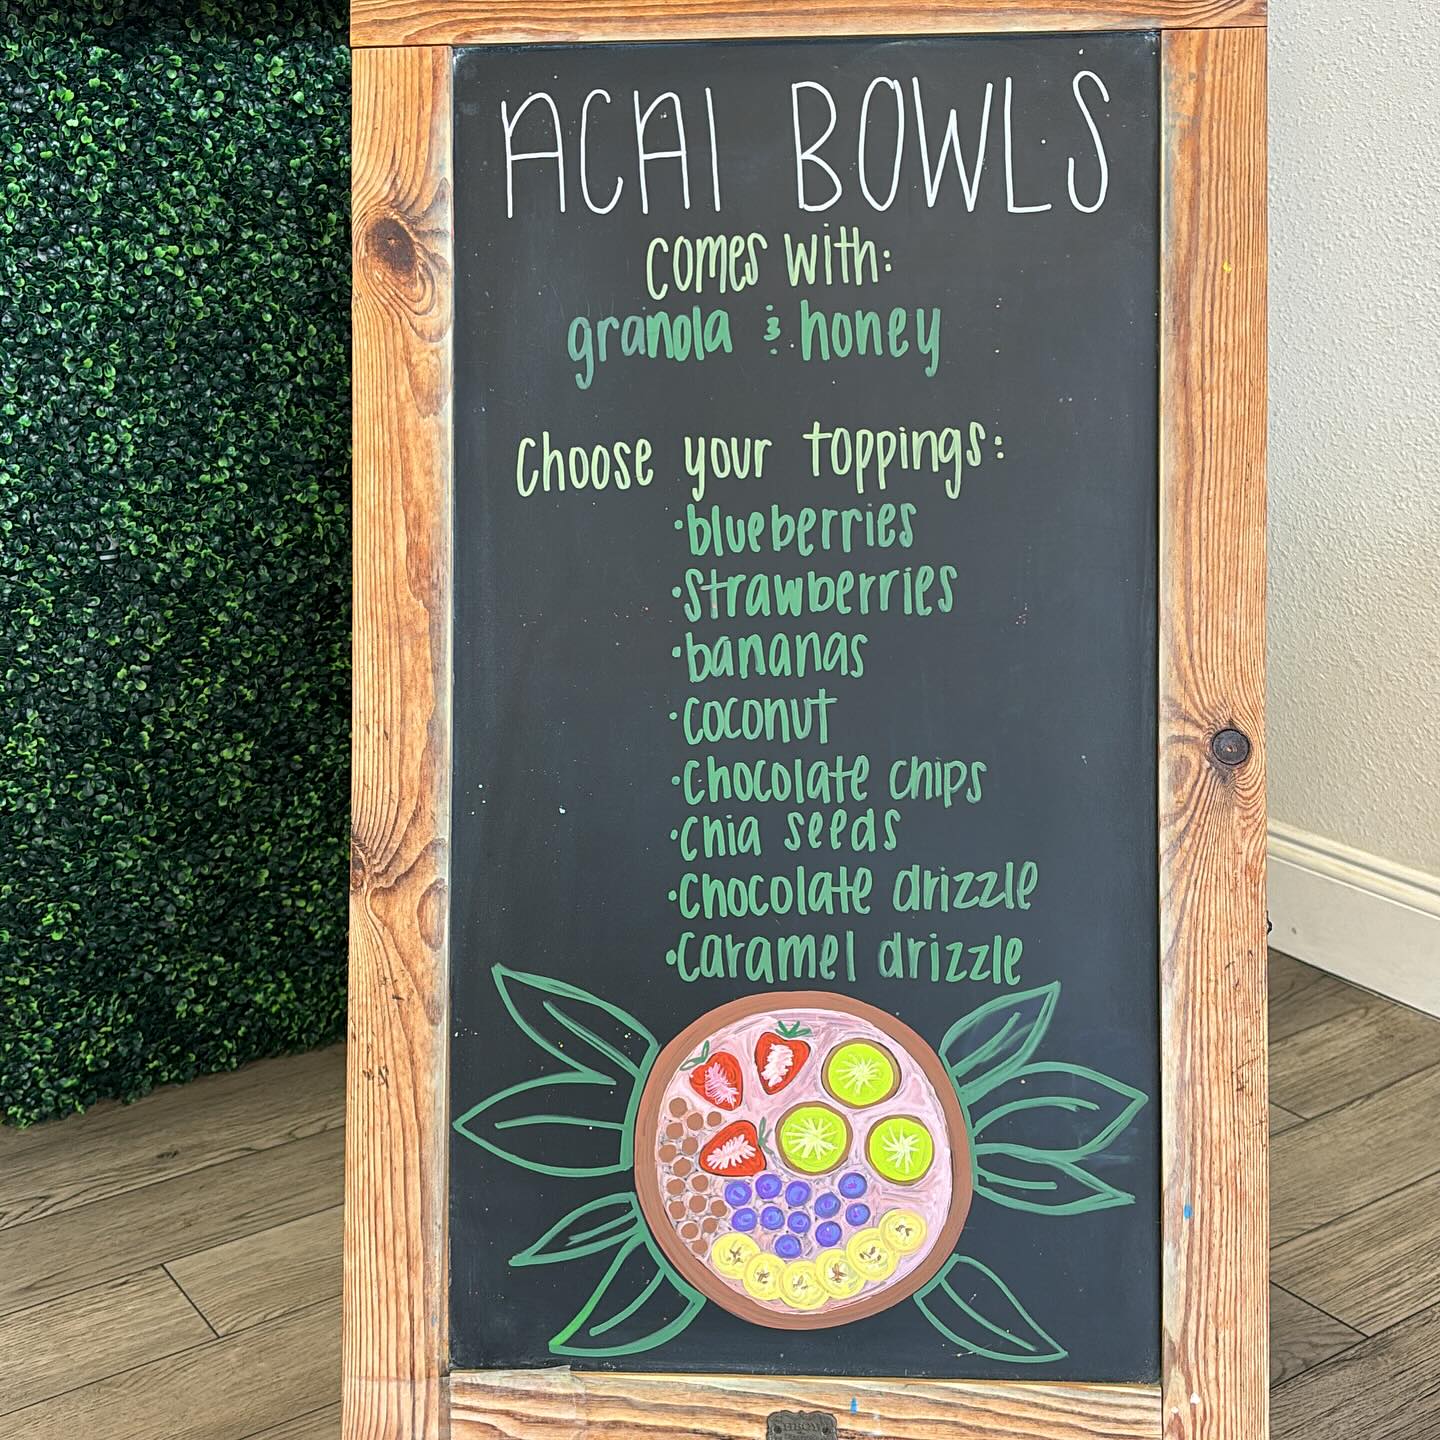 ACAI BOWLS
comes with:
granola & honey
Choose your toppings:
•blueberries
•strawberries
•bananas
•coconut
•chocolate chips
•chia seeds
•chocolate drizzle
•caramel drizzle